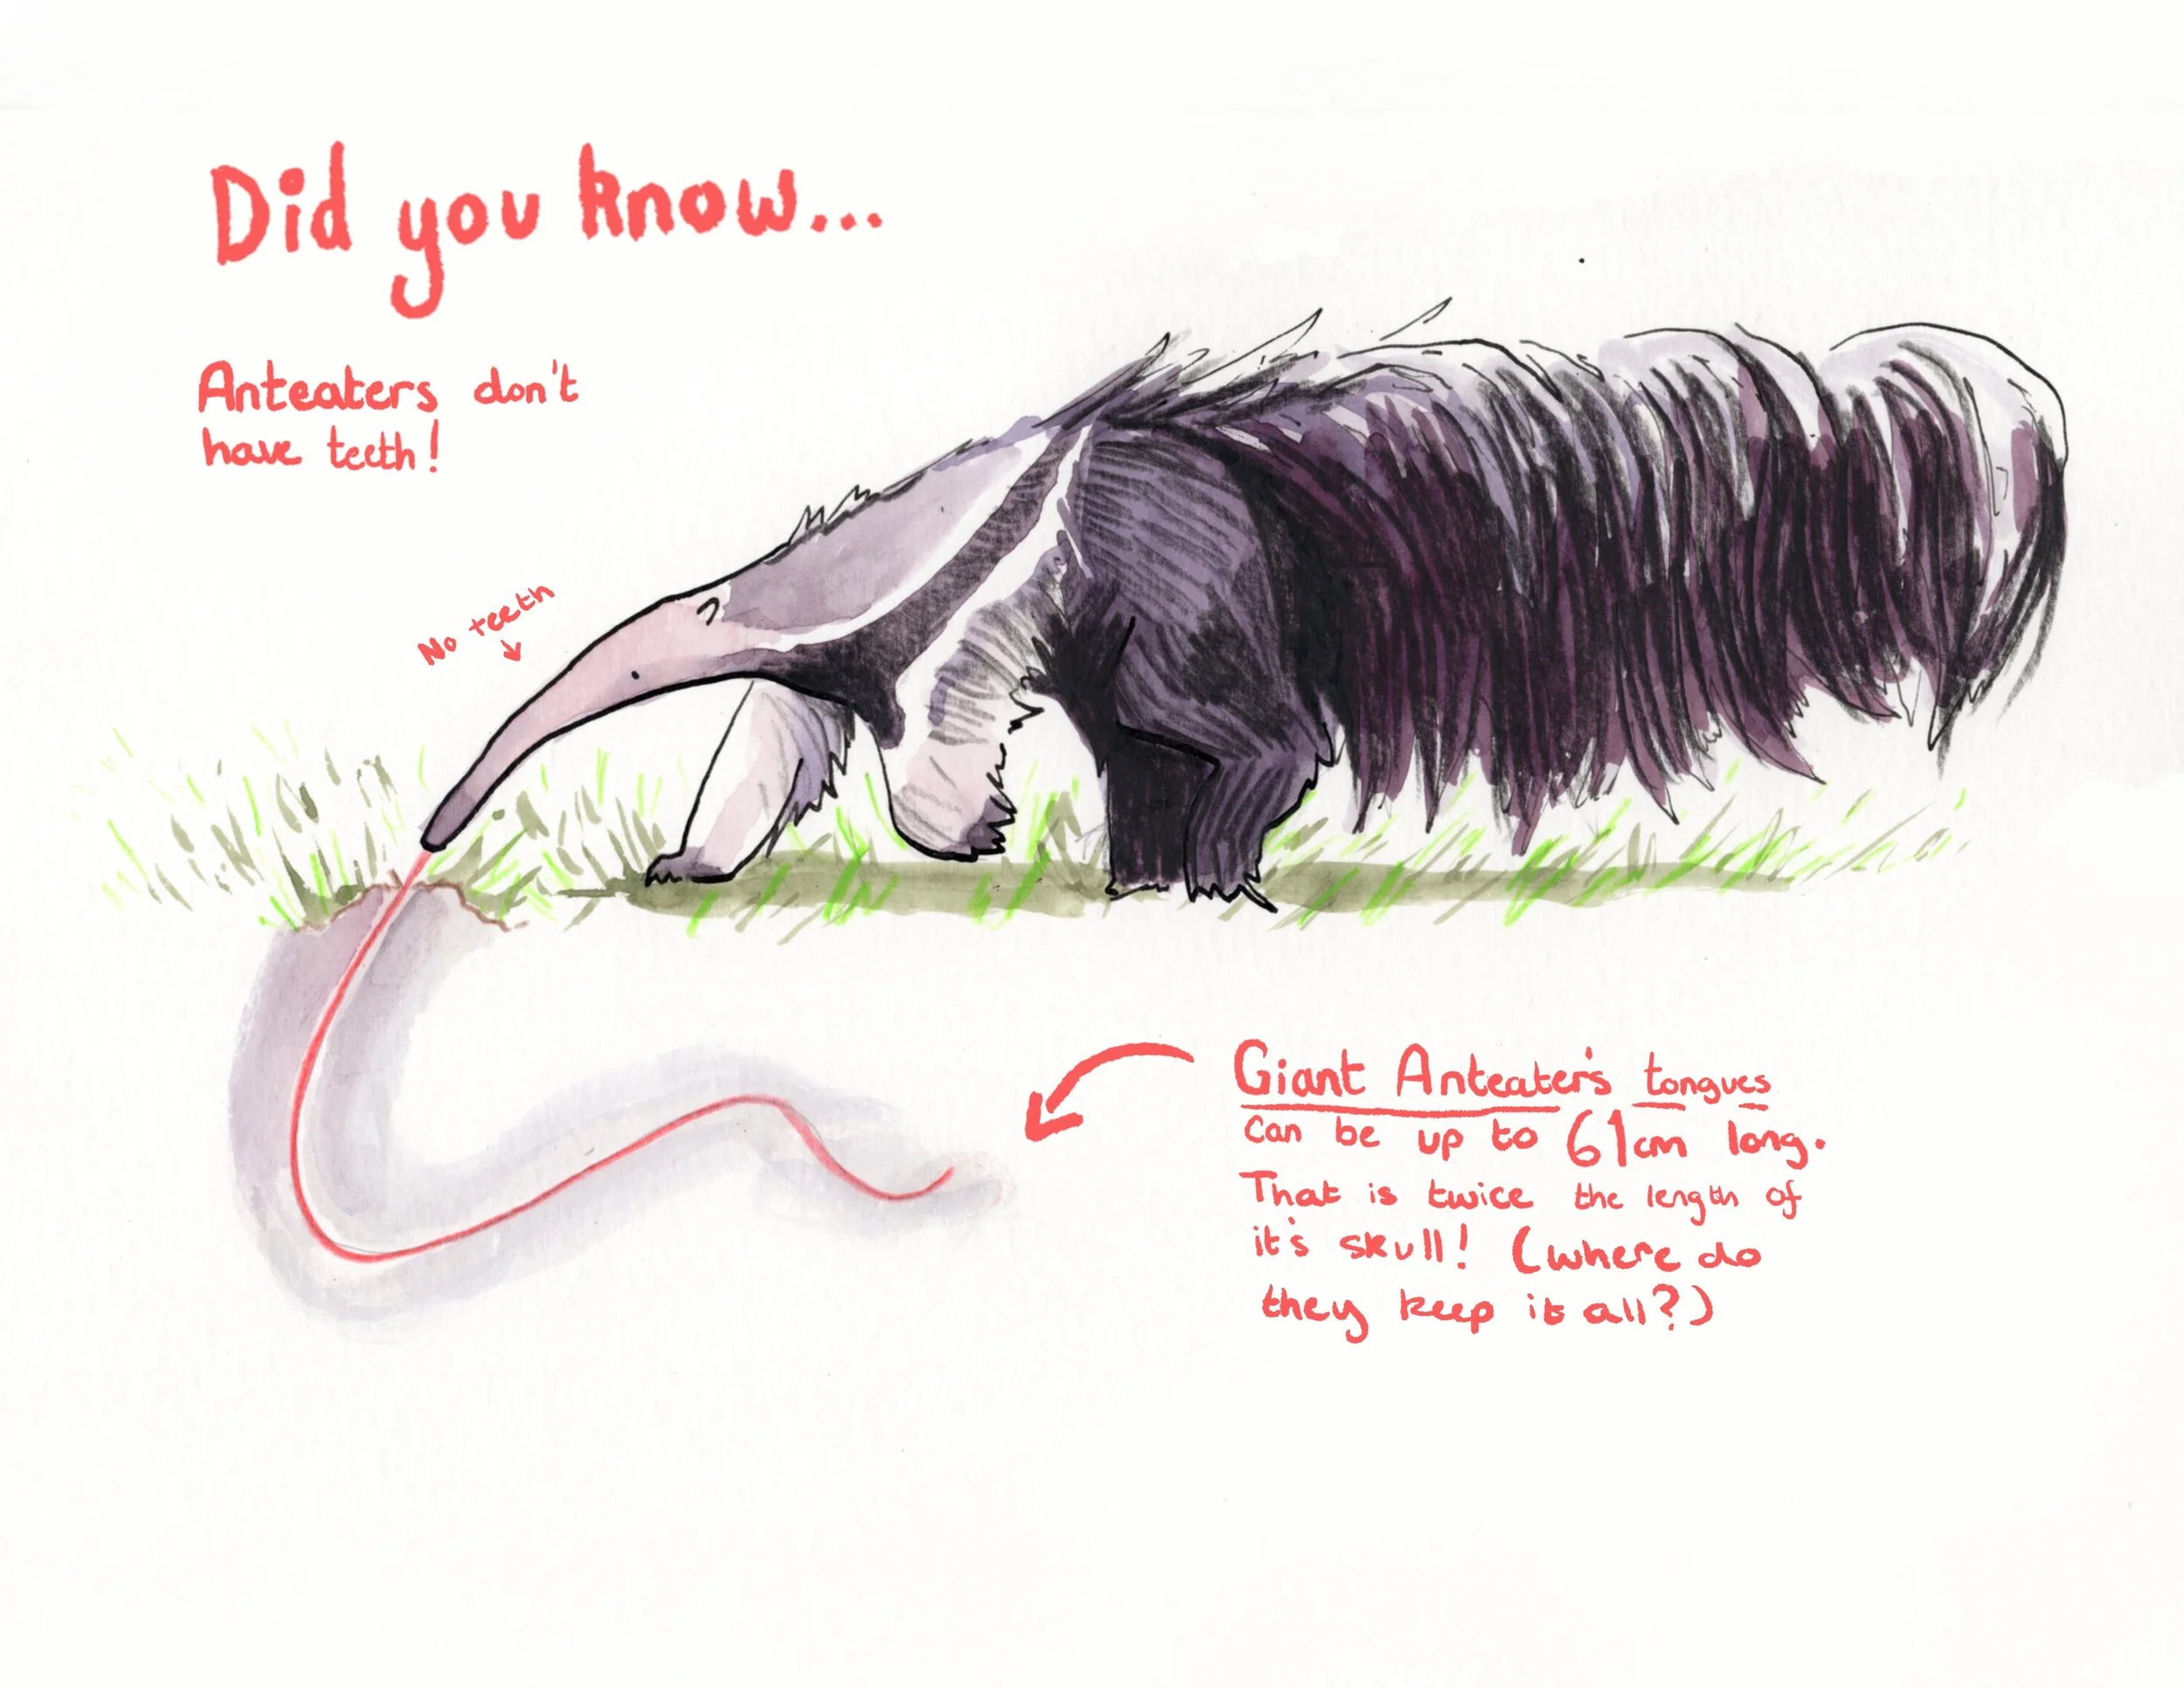 Did you know...
Anteaters don't
have teeth!
No teeth
Giant Anteater's tongues
can be up to 61cm long.
That is twice the length of
it's skull! (where do
they keep it all?)